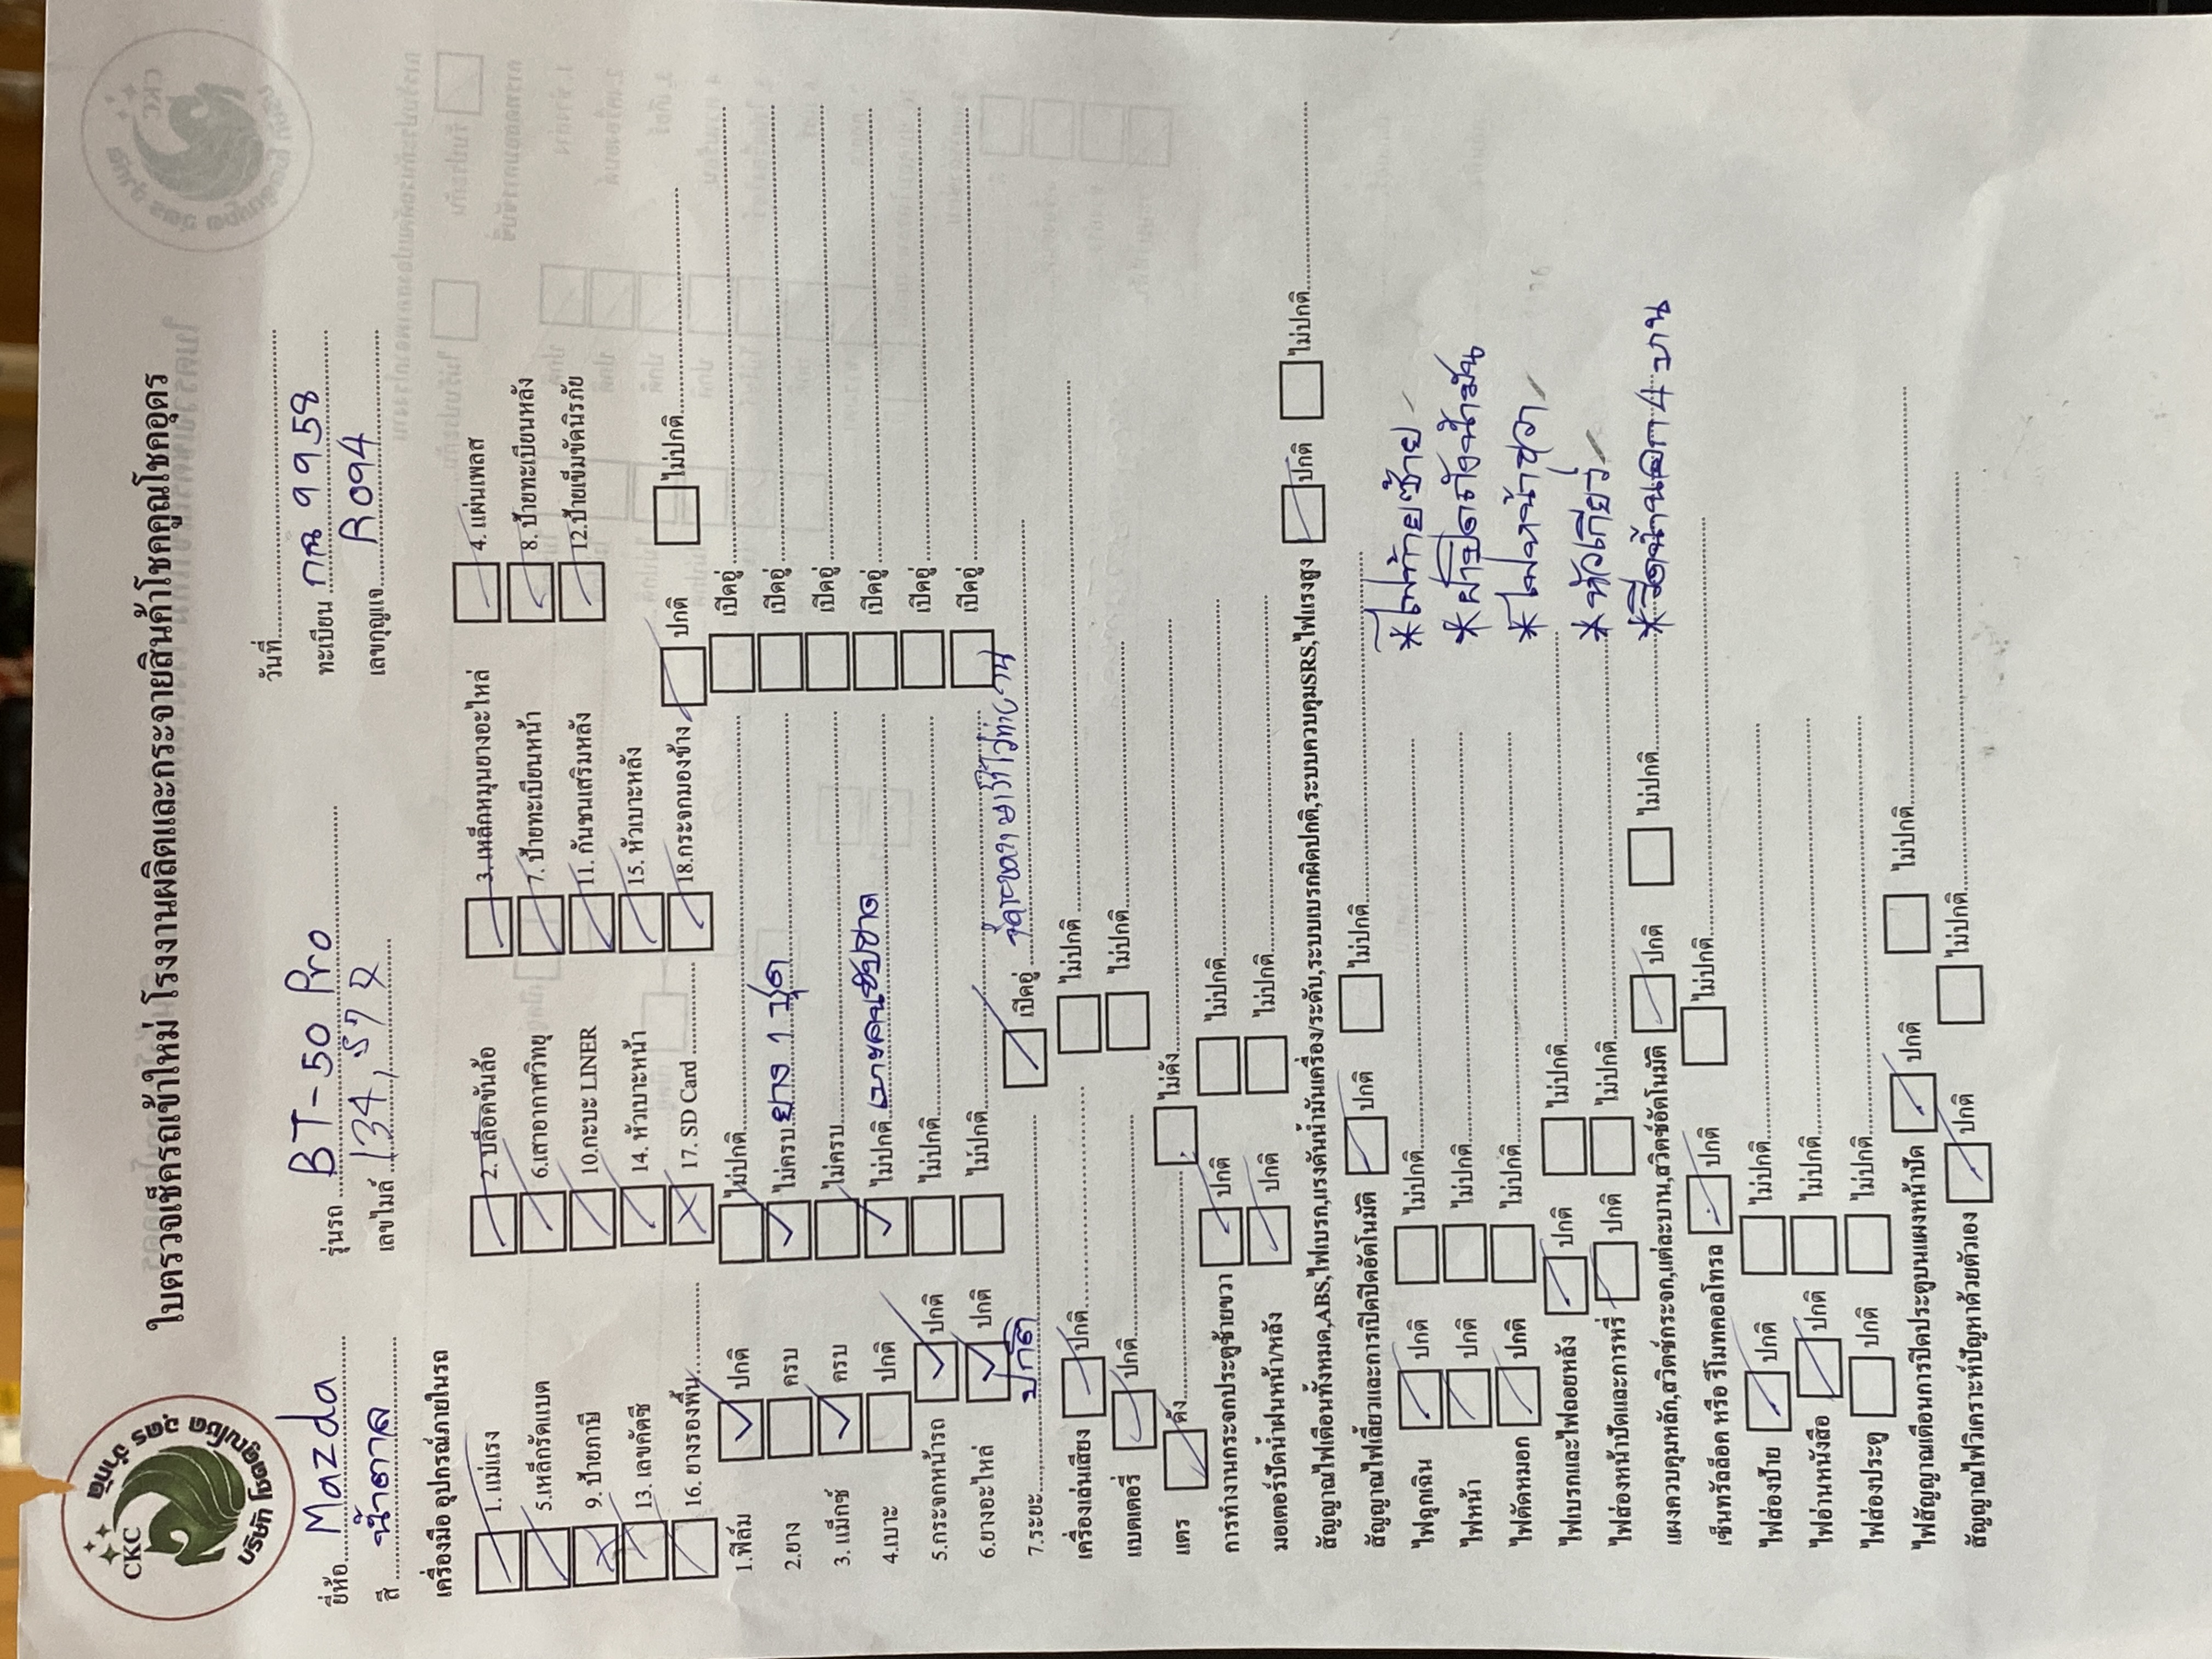 CKC
บริษัท โชคคูณโชค อุดร จำกัด
ใบตรวจเช็ครถเข้าใหม่ โรงงานผลิตและกระจายสินค้าโชคคูณโชคอุดร
วันที่
ยี่ห้อ Mazda รุ่นรถ BT-50 Pro ทะเบียน กฉ 9958
สี น้ำตาล เลขไมล์ 134,572 เลขกุญแจ R094
เครื่องมือ อุปกรณ์ภายในรถ
1. แม่แรง 2. บล็อคขันล้อ 3. เหล็กหมุนยางอะไหล่ 4. แผ่นเพลส
5.เหล็กรัดแบต 6.เสาอากาศวิทยุ 7. ป้ายทะเบียนหน้า 8. ป้ายทะเบียนหลัง
9. ป้ายภาษี 10.กะบะ LINER 11. กันชนเสริมหลัง 12.ป้ายเข็มขัดนิรภัย
13. เลขคัดซี 14. หัวเบาะหน้า 15. หัวเบาะหลัง
16. ยางรองพื้น 17. SD Card 18.กระจกมองข้าง ปกติ ไม่ปกติ
1.ฟีล์ม ปกติ ไม่ปกติ เบิดอู่
2.ยาง ครบ ไม่ครบ ยาง 1 ชุด เบิดอู่
3. แม็กซ์ ครบ ไม่ครบ เบิดอู่
4.เบาะ ปกติ ไม่ปกติ เบาะคนขับขาด เบิดอู่
5.กระจกหน้ารถ ปกติ ไม่ปกติ เบิดอู่
6.ยางอะไหล่ ปกติ ไม่ปกติ เบิดอู่
7.ระยะ ปกติ เบิดอู่
เครื่องเล่นเสียง ปกติ ไม่ปกติ
แบตเตอรี่ ปกติ ไม่ปกติ
แตร ดัง ไม่ดัง
การทำงานกระจกประตูซ้ายขวา ปกติ ไม่ปกติ
มอเตอร์ปัดน้ำฝนหน้า/หลัง ปกติ ไม่ปกติ
สัญญาณไฟเตือนทั้งหมด,ABS,ไฟเบรก,แรงดันน้ำมันเครื่อง/ระดับ,ระบบเบรกผิดปกติ,ระบบควบคุมSRS,ไฟแรงสูง ปกติ ไม่ปกติ
สัญญาณไฟเลี้ยวและการเปิดปิดอัตโนมัติ ปกติ ไม่ปกติ
ไฟฉุกเฉิน ปกติ ไม่ปกติ *ไฟท้ายซ้าย
ไฟหน้า ปกติ ไม่ปกติ *ฝาปิดถังน้ำมัน
ไฟตัดหมอก ปกติ ไม่ปกติ *ไฟหน้าขวา
ไฟเบรกและไฟถอยหลัง ปกติ ไม่ปกติ *หัวเกียร์
ไฟส่องหน้าปัดและการหรี่ ปกติ ไม่ปกติ
แผงควบคุมหลัก,สวิตช์กระจก,แต่ละบาน,สวิตช์อัตโนมัติ ปกติ ไม่ปกติ
เซ็นทรัลล็อค หรือ รีโมทคอลโทรล ปกติ ไม่ปกติ
ไฟส่องป้าย ปกติ ไม่ปกติ
ไฟอ่านหนังสือ ปกติ ไม่ปกติ
ไฟส่องประตู ปกติ ไม่ปกติ
ไฟสัญญาณเตือนการปิดประตูบนแผงหน้าปัด ปกติ ไม่ปกติ
สัญญาณไฟวิเคราะห์ปัญหาด้วยตัวเอง ปกติ ไม่ปกติ